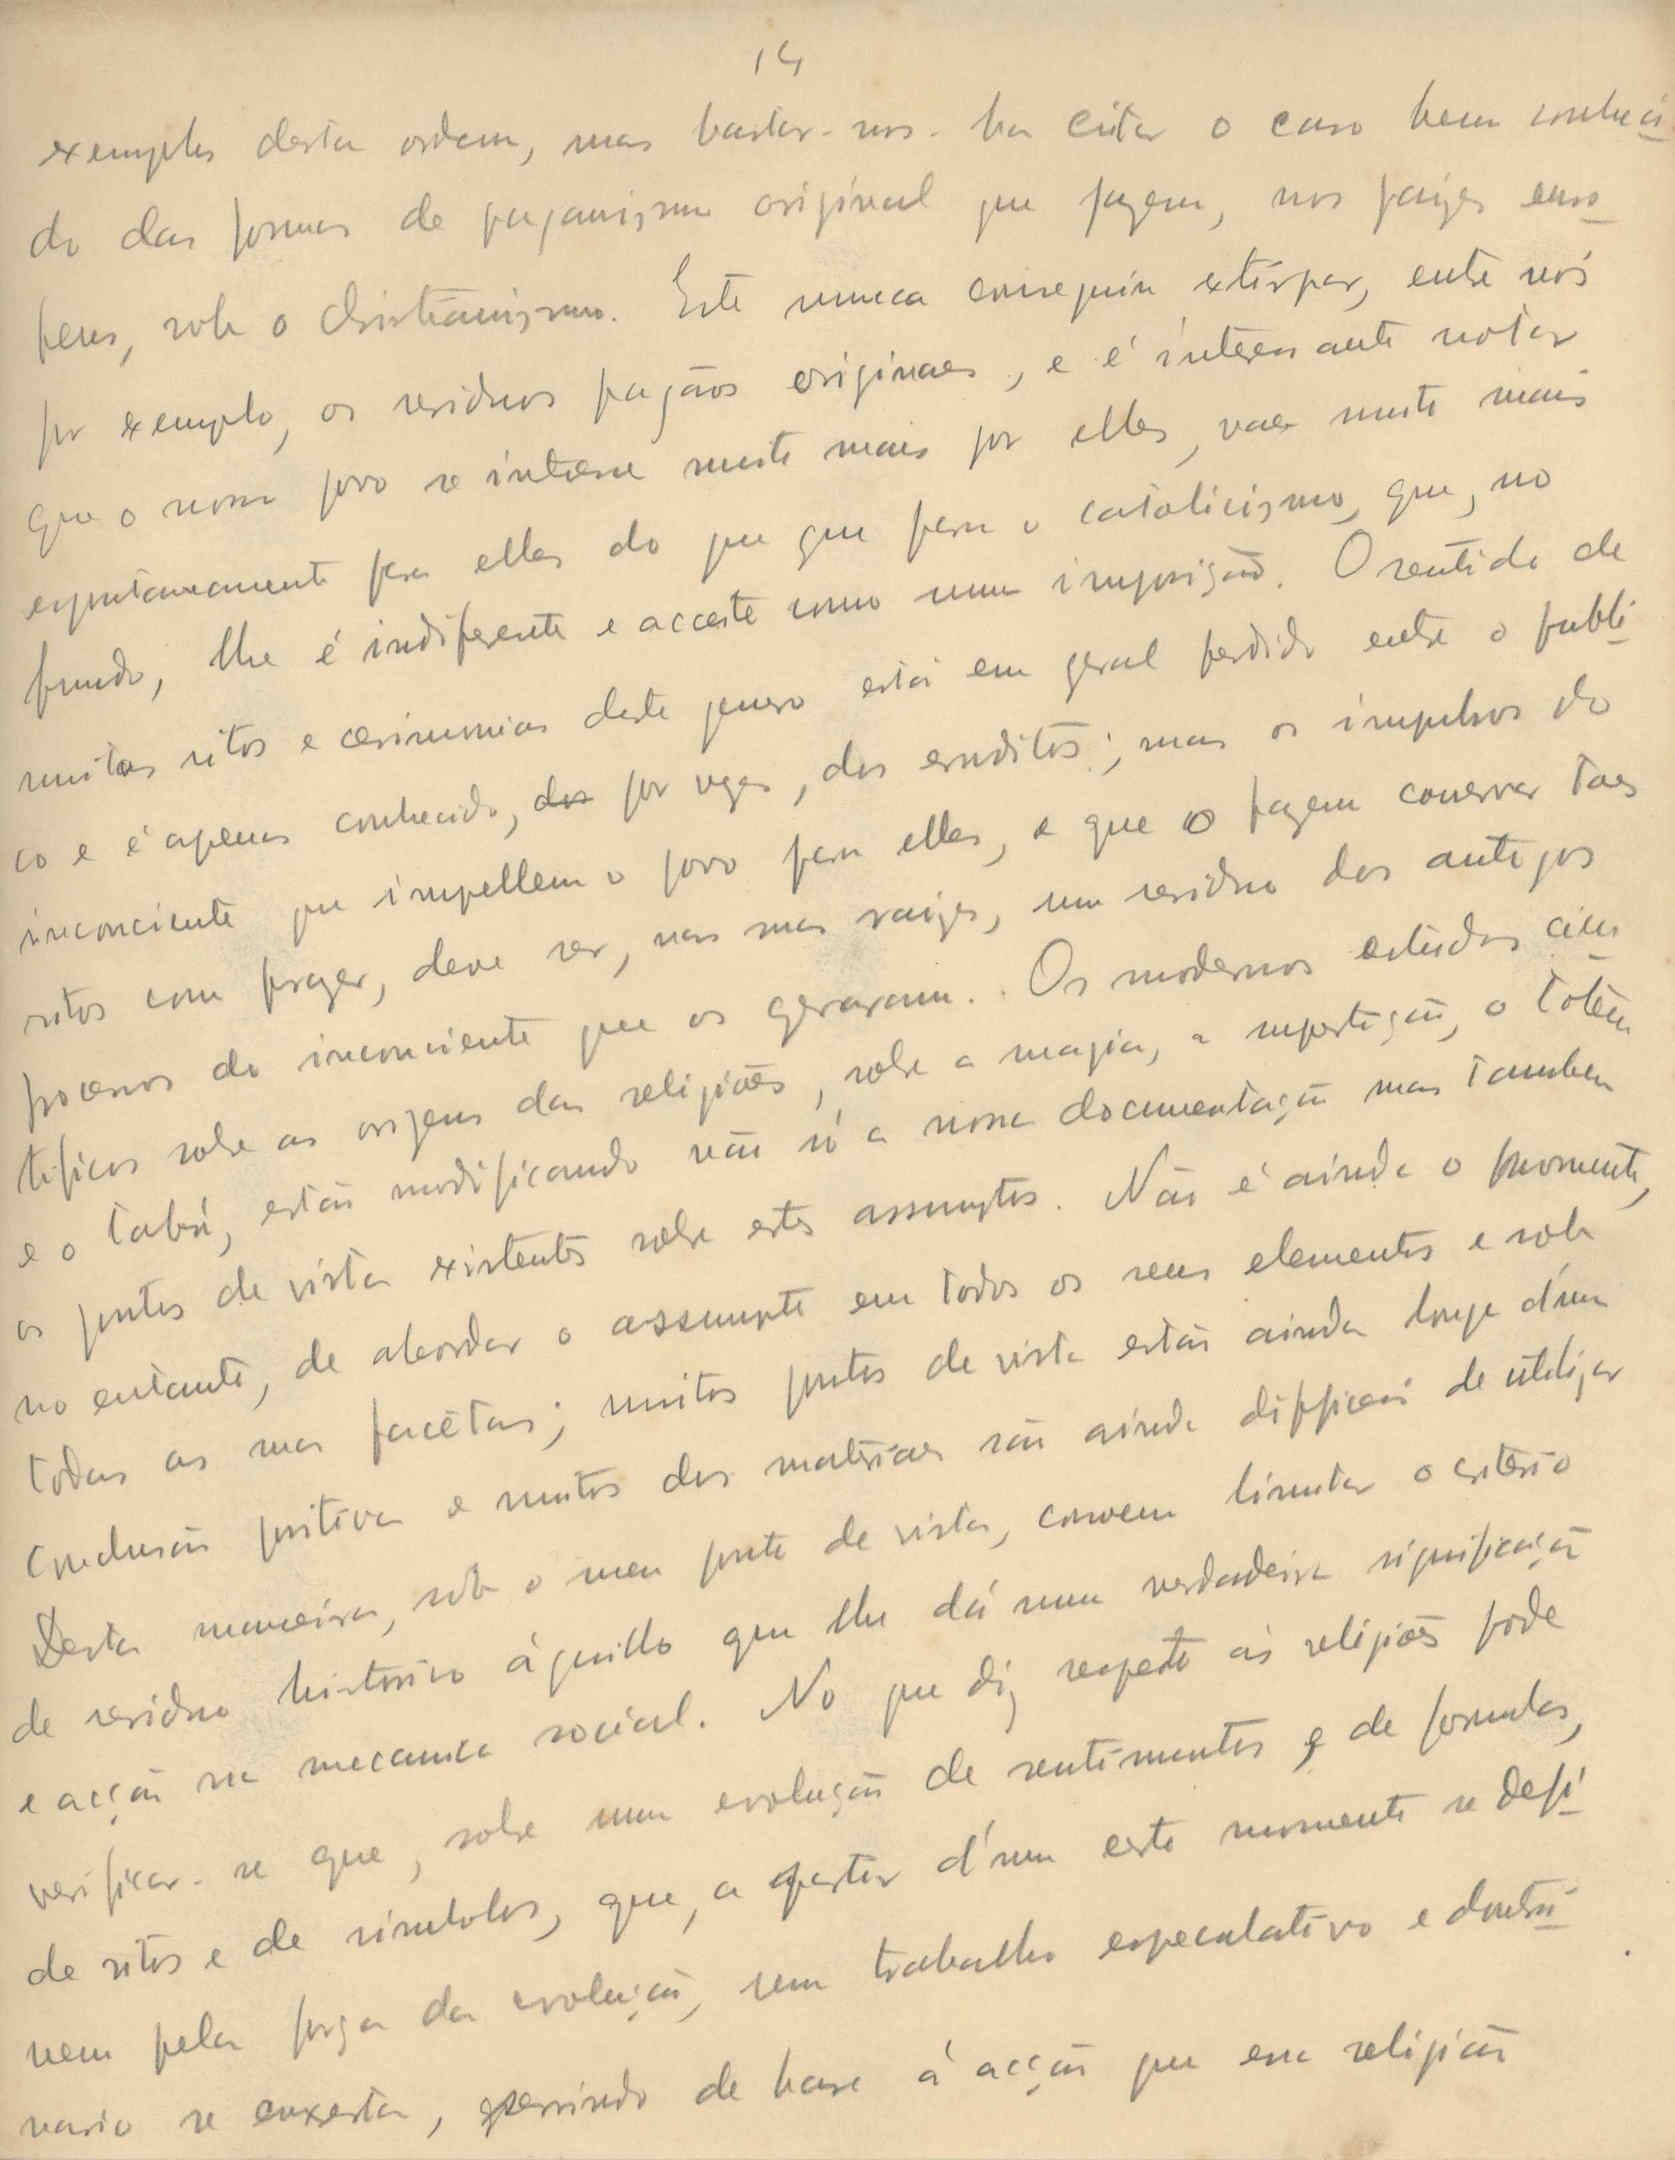 14
exemplos desta ordem, mas bastar-nos-ha citar o caso bem conheci-
do das formas de paganismo original que jazem, nos paizes euro-
peus, sob o Christianismo. Este nunca conseguiu extirpar, entre nós
por exemplo, os residuos pagãos originaes, e é interessante notar
que o nosso povo se interesse muito mais por elles, vae muito mais
espontaneamente para elles do que que para o catolicismo, que, no
fundo, lhe é indiferente e acceite como uma imposição. O sentido de
muitos ritos e cerimonias deste genero está em geral perdido entre o publi-
co e é apenas conhecido, por vezes, dos eruditos; mas os impulsos do
inconciente que impellem o povo para elles, e que o fazem conservar taes
ritos com prazer, deve ser, nas suas raizes, um residuo dos antigos
processos do inconciente que os geraram. Os modernos estudos cien-
tificos sobre as origens das religiões, sobre a magia, a superstição, o totem
e o tabú, estão modificando não só a nossa documentação mas tambem
os pontos de vista existentes sobre estes assumptos. Não é ainda o momento,
no entanto, de abordar o assumpto em todos os seus elementos e sob
todas as suas facetas; muitos pontos de vista estão ainda longe d'uma
conclusão positiva e muitos dos materiaes são ainda difficeis de utilizar
Desta maneira, sob o meu ponto de vista, convem limitar o criterio
de residuo historico áquillo que lhe dá uma verdadeira significação
e acção na mecanica social. No que diz respeito ás religiões pode
verificar-se que, sobre uma evolução de sentimentos e de formulas,
de ritos e de simbolos, que, a partir d'um certo momento se defi-
nem pela força da evolução, um trabalho especulativo e doutri-
nario se enxerta, servindo de base á acção que essa religião